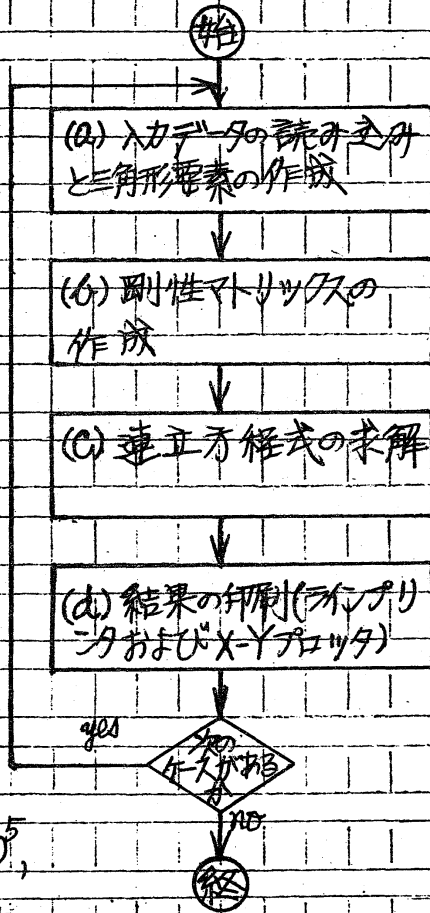 始
(a) 入力データの読み込み
と三角形要素の作成
(b) 剛性マトリックスの
作成
(C) 連立方程式の求解
(d) 結果の印刷(ラインプリ
ンタおよびX-Yプロッタ)
yes
次の
ケースがある
か
no
5,
終